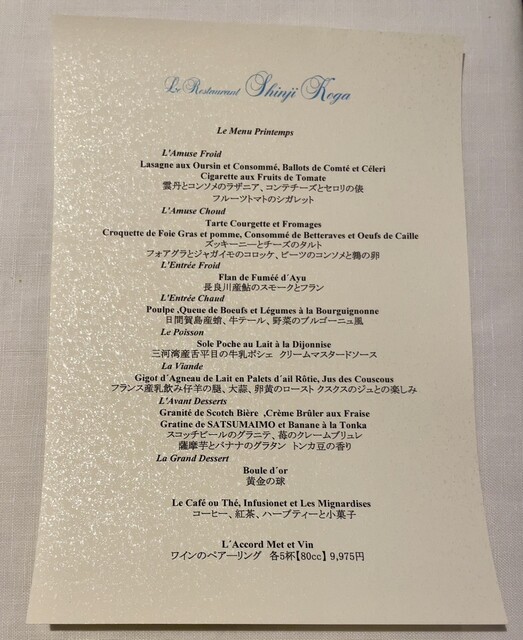 Le Restaurant Shinji Koga
Le Menu Printemps
L'Amuse Froid
Lasagne aux Oursin et Consommé, Ballots de Comté et Céleri
Cigarette aux Fruits de Tomate
雲丹とコンソメのラザニア、コンテチーズとセロリの俵
フルーツトマトのシガレット
L'Amuse Choud
Tarte Courgette et Fromages
Croquette de Foie Gras et pomme, Consommé de Betteraves et Oeufs de Caille
ズッキーニーとチーズのタルト
フォアグラとジャガイモのコロッケ、ビーツのコンソメと鶉の卵
L'Entrée Froid
Flan de Fuméé d´Ayu
長良川産鮎のスモークとフラン
L'Entrée Chaud
Poulpe ,Queue de Boeufs et Légumes à la Bourguignonne
日間賀島産蛸、牛テール、野菜のブルゴーニュ風
Le Poisson
Sole Poche au Lait à la Dijonnise
三河湾産舌平目の牛乳ポシェ クリームマスタードソース
La Viande
Gigot d´Agneau de Lait en Palets d´ail Rôtie, Jus des Couscous
フランス産乳飲み仔羊の腿、大蒜、卵黄のロースト クスクスのジュとの楽しみ
L'Avant Desserts
Granité de Scotch Bière ,Crème Brûler aux Fraise
Gratine de SATSUMAIMO et Banane à la Tonka
スコッチビールのグラニテ、苺のクレームブリュレ
薩摩芋とバナナのグラタン トンカ豆の香り
La Grand Dessert
Boule d´or
黄金の球
Le Café ou Thé, Infusionet et Les Mignardises
コーヒー、紅茶、ハーブティーと小菓子
L´Accord Met et Vin
ワインのペアーリング 各5杯【80cc】 9,975円